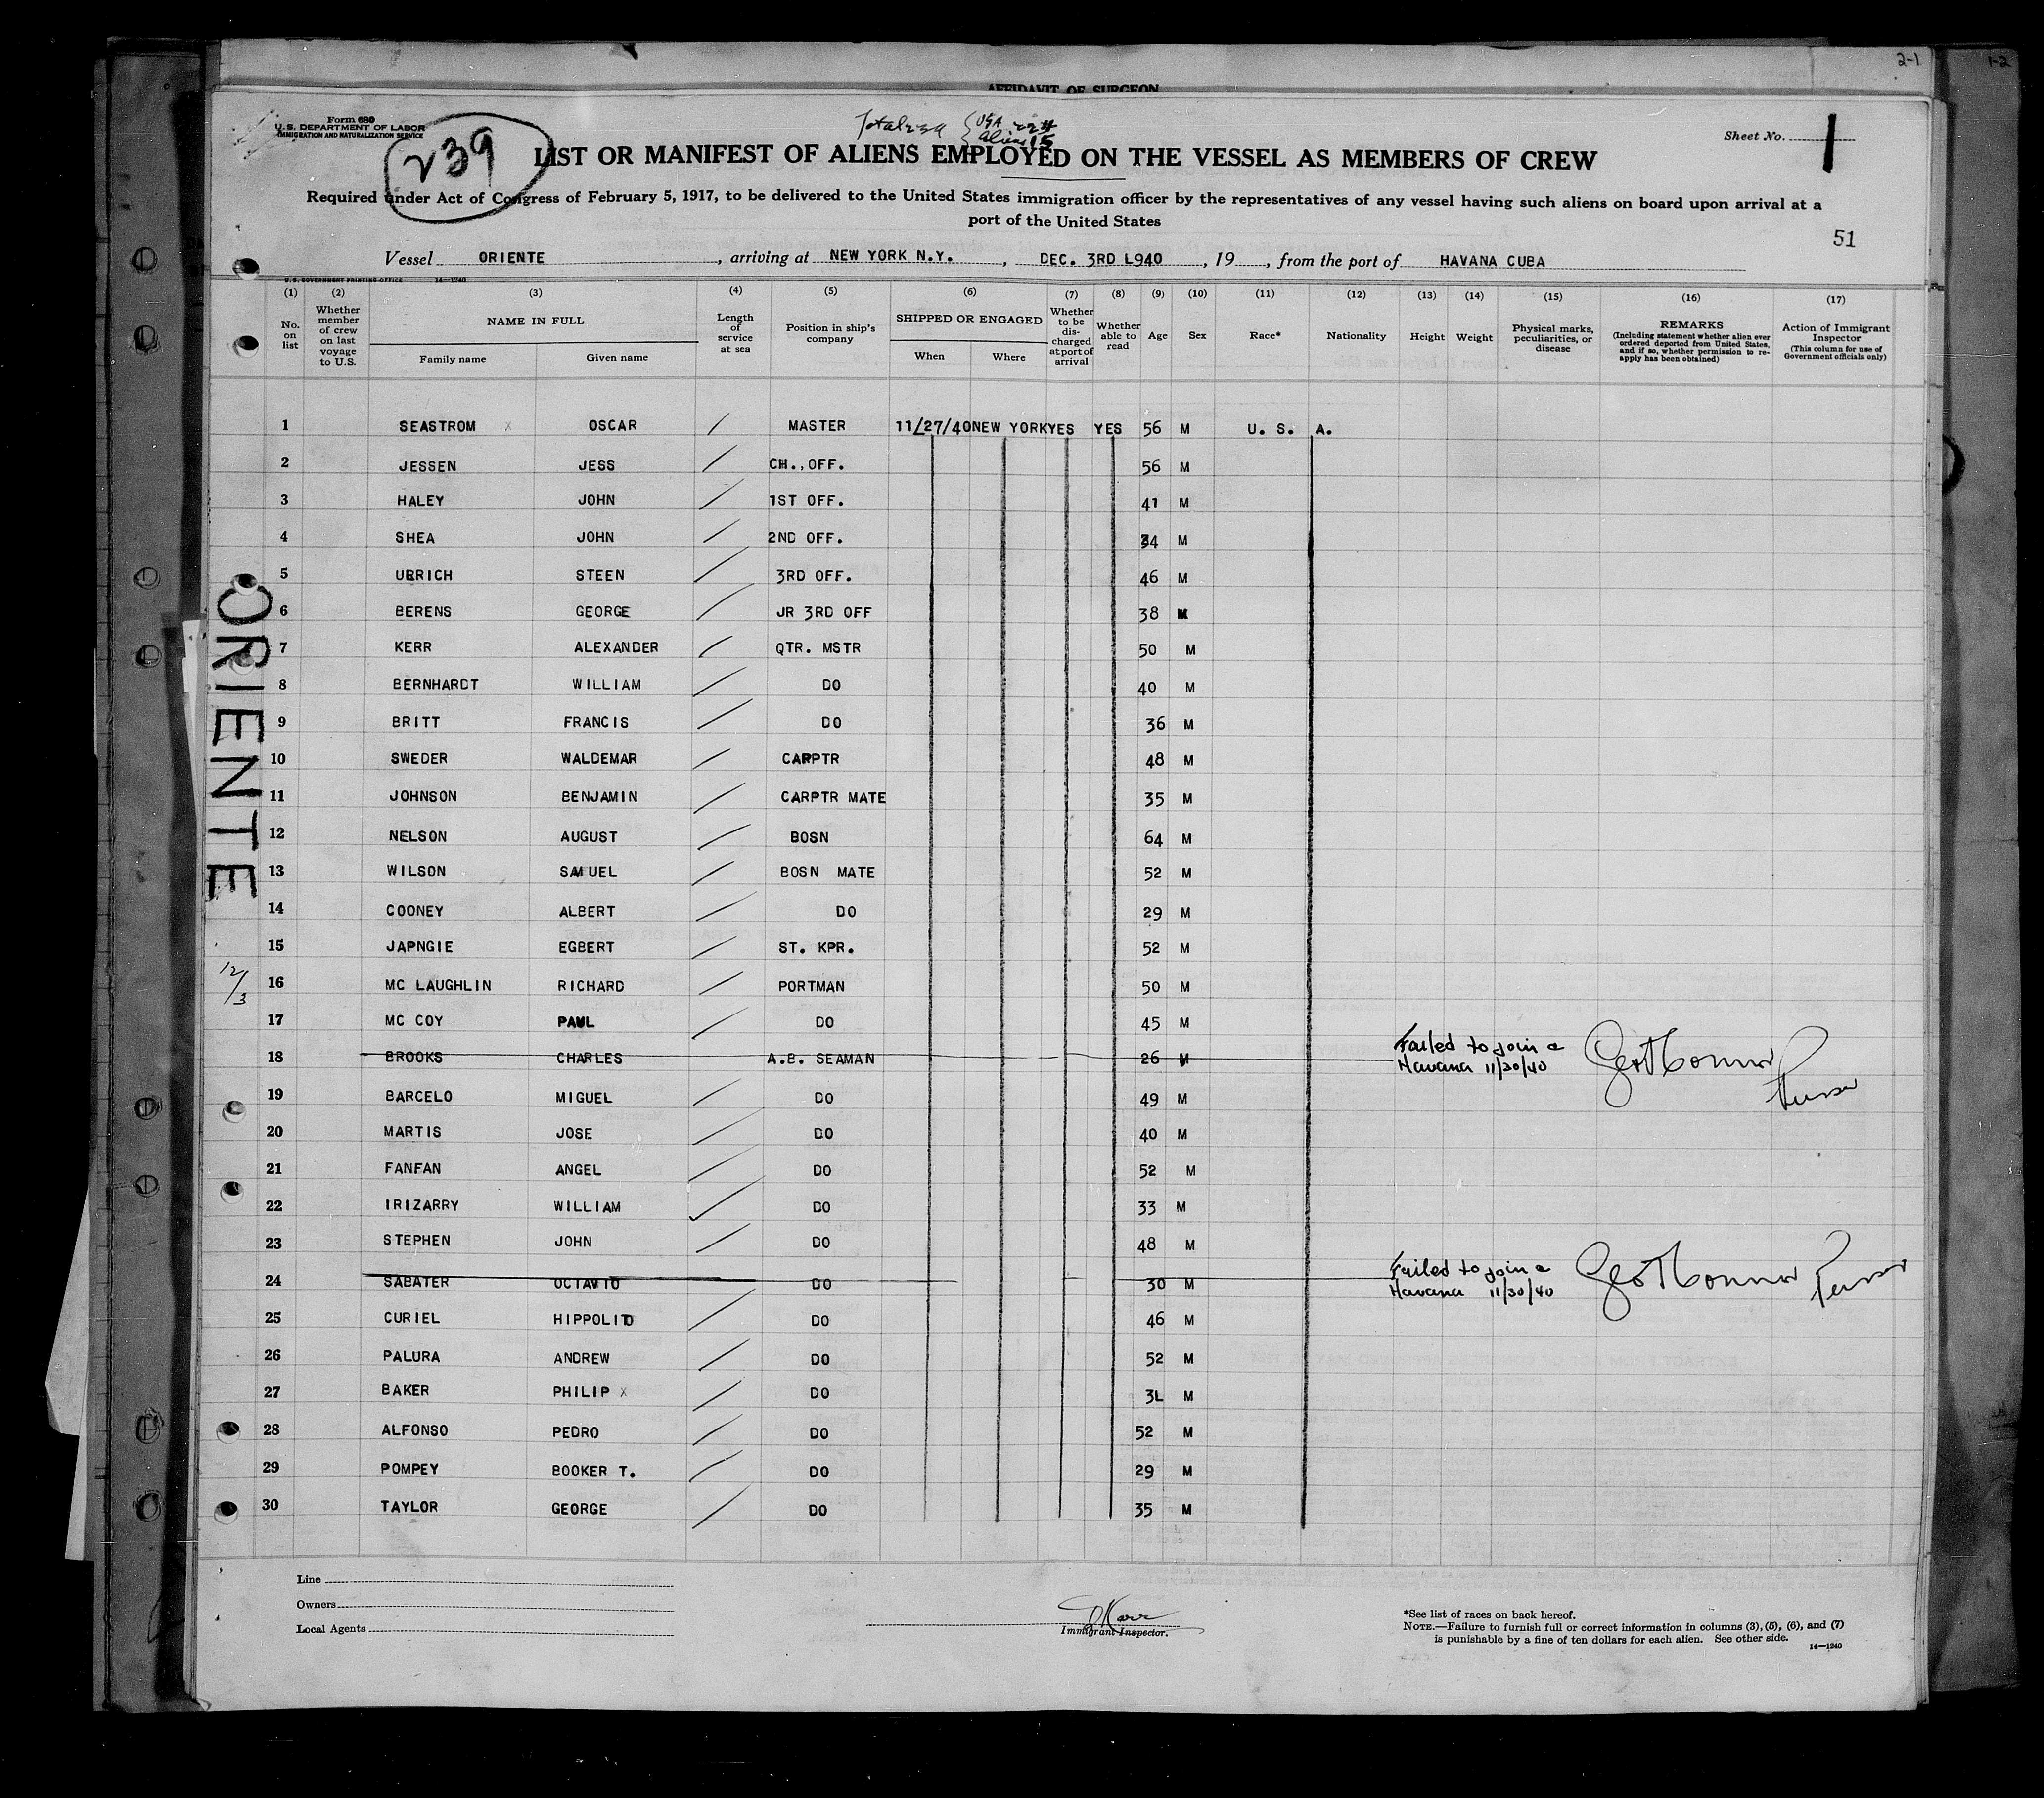 2-1
1-2
AFFIDAVIT OF SURGEON
Form 680
U.S. DEPARTMENT OF LABOR
IMMIGRATION AND NATURALIZATION SERVICE
239
Total 239 { USA 224
Aliens 15
Sheet No. 1
LIST OR MANIFEST OF ALIENS EMPLOYED ON THE VESSEL AS MEMBERS OF CREW
Required under Act of Congress of February 5, 1917, to be delivered to the United States immigration officer by the representatives of any vessel having such aliens on board upon arrival at a
port of the United States
51
Vessel ORIENTE, arriving at NEW YORK N.Y., DEC. 3RD L940, 19, from the port of HAVANA CUBA
U.S. GOVERNMENT PRINTING OFFICE 14—1240
(1) (2) (3) (4) (5) (6) (7) (8) (9) (10) (11) (12) (13) (14) (15) (16) (17)
No. on list
Whether member of crew on last voyage to U.S.
NAME IN FULL
Family name Given name
Length of service at sea
Position in ship's company
SHIPPED OR ENGAGED
When Where
Whether to be discharged at port of arrival
Whether able to read
Age
Sex
Race*
Nationality
Height
Weight
Physical marks, peculiarities, or disease
REMARKS
(Including statement whether alien ever ordered deported from United States, and if so, whether permission to re-apply has been obtained)
Action of Immigrant Inspector
(This column for use of Government officials only)
1 SEASTROM x OSCAR MASTER 11/27/40 NEW YORK YES YES 56 M U. S. A.
2 JESSEN JESS CH., OFF. 56 M
3 HALEY JOHN 1ST OFF. 41 M
4 SHEA JOHN 2ND OFF. 34 M
5 UBRICH STEEN 3RD OFF. 46 M
6 BERENS GEORGE JR 3RD OFF 38 M
7 KERR ALEXANDER QTR. MSTR 50 M
8 BERNHARDT WILLIAM DO 40 M
9 BRITT FRANCIS DO 36 M
10 SWEDER WALDEMAR CARPTR 48 M
11 JOHNSON BENJAMIN CARPTR MATE 35 M
12 NELSON AUGUST BOSN 64 M
13 WILSON SAMUEL BOSN MATE 52 M
14 COONEY ALBERT DO 29 M
15 JAPNGIE EGBERT ST. KPR. 52 M
16 MC LAUGHLIN RICHARD PORTMAN 50 M
17 MC COY PAUL DO 45 M
18 BROOKS CHARLES A.B. SEAMAN 26 M Failed to join a
Havana 11/30/40
Purser
19 BARCELO MIGUEL DO 49 M
20 MARTIS JOSE DO 40 M
21 FANFAN ANGEL DO 52 M
22 IRIZARRY WILLIAM DO 33 M
23 STEPHEN JOHN DO 48 M
24 SABATER OCTAVIO DO 30 M Failed to join a
Havana 11/30/40
Purser
25 CURIEL HIPPOLITO DO 46 M
26 PALURA ANDREW DO 52 M
27 BAKER PHILIP x DO 3L M
28 ALFONSO PEDRO DO 52 M
29 POMPEY BOOKER T. DO 29 M
30 TAYLOR GEORGE DO 35 M
ORIENTE
12/3
Line
Owners
Local Agents
Immigrant Inspector.
*See list of races on back hereof.
NOTE.—Failure to furnish full or correct information in columns (3), (5), (6), and (7)
is punishable by a fine of ten dollars for each alien. See other side. 14—1240